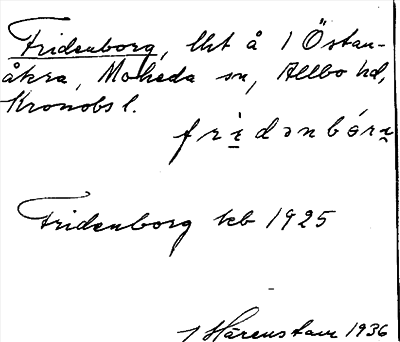 Fridenborg, lht å 1 Östan-
åkra, Moheda sn, Allbo hd,
Kronobs l.
fridənbórj
Fridenborg kb 1925
1936